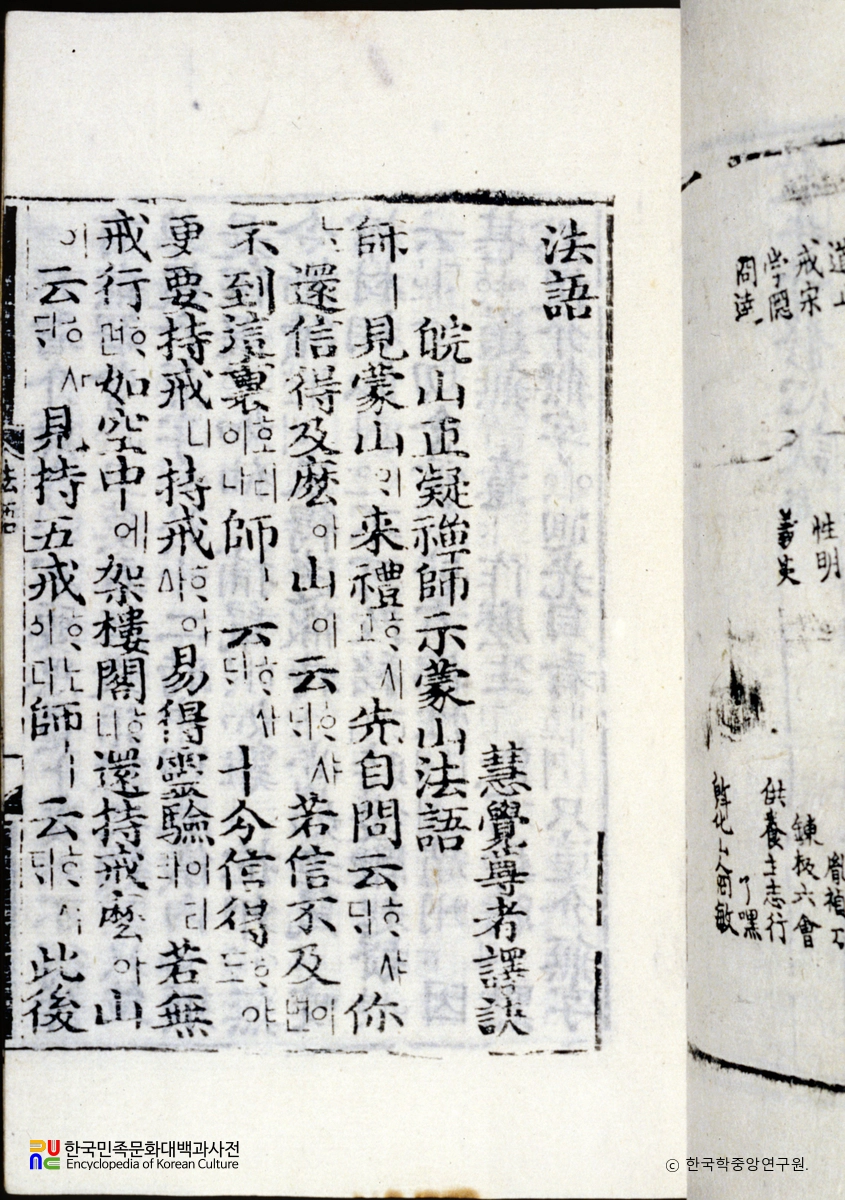 戒宋
性明
鍊板六會
供養主志行
了嘿
法語
慧覺尊者譯訣
皖山正凝禪師示蒙山法語
師ㅣ見蒙山의来禮ᄒᆞ시고先自問云ᄒᆞ샤ᄃᆡ你
ᄂᆞᆫ還信得及麽아山이云ᄒᆞ샤ᄃᆡ若信不及이면
不到這裏호리이다師ㅣ云ᄒᆞ샤ᄃᆡ十分信得ᄒᆞ야도
更要持戒니持戒ᄒᆞ야ᅀᅡ易得靈驗이리라若無
戒行ᄒᆞ면如空中에架樓閣ᄒᆞ니還持戒麽아山
이云ᄒᆞ샤ᄃᆡ見持五戒ᄒᆞ노이다師ㅣ云ᄒᆞ샤ᄃᆡ此後
法語
한국민족문화대백과사전
Encyclopedia of Korean Culture
ⓒ 한국학중앙연구원.